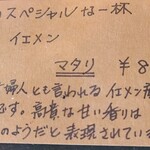 のスペシャルな一杯
イエメン
マタリ ￥8
婦人とも言われる イエメン産
です。高貴な甘い香りは
のようだと表現されている